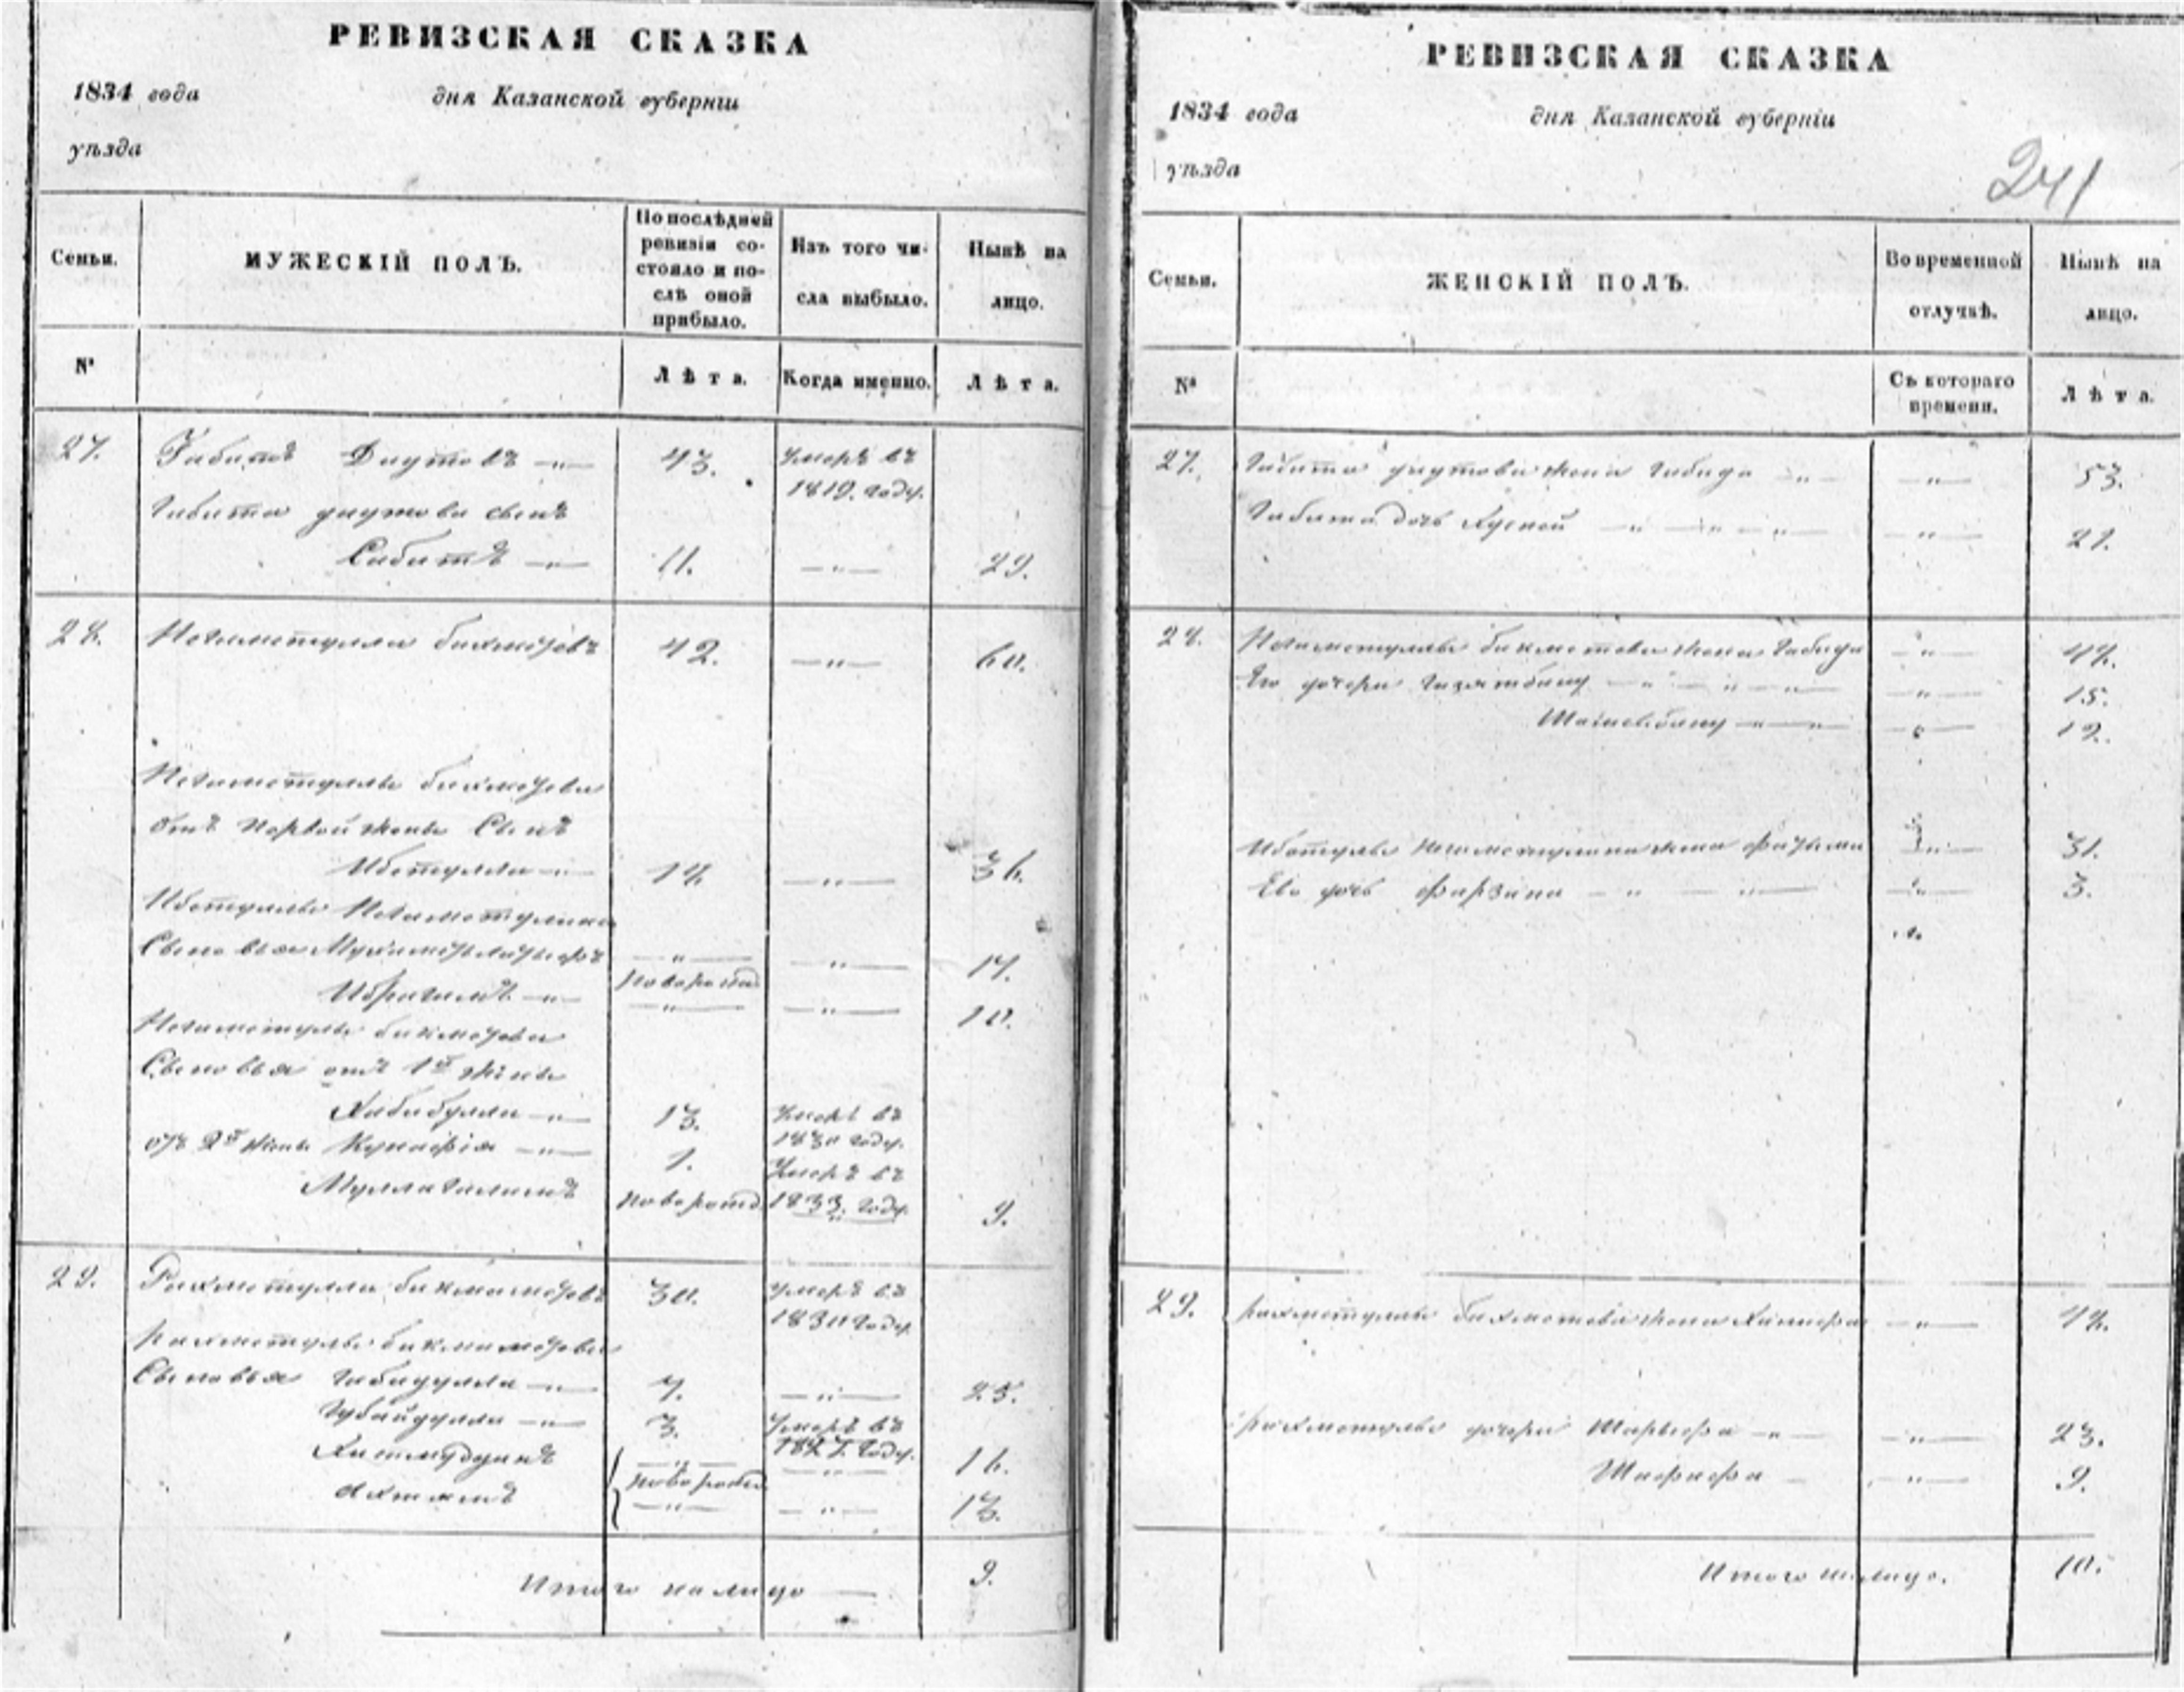 РЕВИЗСКАЯ СКАЗКА
1834 года дня Казанской губерніи
уѣзда
Семьи. МУЖЕСКІЙ ПОЛЪ. По послѣдней ревизіи состояло и послѣ оной прибыло. Изъ того числа выбыло. Нынѣ на лицо.
№ Лѣта. Когда именно. Лѣта.
27. Габитъ Даутовъ 43. Умеръ въ
1819. году.
Габита даутова сынъ
Сабитъ 11. 29.
28. Негаметулла бикметовъ 42. 60.
Негаметуллы бикметова
отъ первой жены Сынъ
Ибетулла 18. 36.
Ибетуллы
Сыновья 17.
Ибрагимъ новорожд 10.
Негаметуллы бикметова
Сыновья отъ 1й жены
Хабибулла 13. Умеръ въ
1830 году.
отъ 2й жены 1. Умеръ въ
Муллагалимъ новорожд. 1833. году. 9.
29. Рахметулла бикмаметовъ 30. Умеръ въ
1830 году
Рахметуллы бикмаметова
Сыновья Габидулла 7. 25.
Губайдулла 3. Умеръ въ
году. 16.
новорожд.
Ахтямъ 13.
Итого на лицо 9.
РЕВИЗСКАЯ СКАЗКА
1834 года дня Казанской губерніи
уѣзда
241
Семьи. ЖЕНСКІЙ ПОЛЪ. Во временной отлучкѣ. Нынѣ на лицо.
№ Съ котораго времени. Лѣта.
27. Габита даутова жена Габида 53.
Габита дочь 21.
28. Негаметуллы бикметова жена Габида 48.
Его дочери 15.
12.
Ибетуллы жена 31.
Его дочь Фарзана 3.
29. Рахметуллы бикметова жена 48.
Рахметуллы дочери 23.
9.
Итого на лицо. 10.